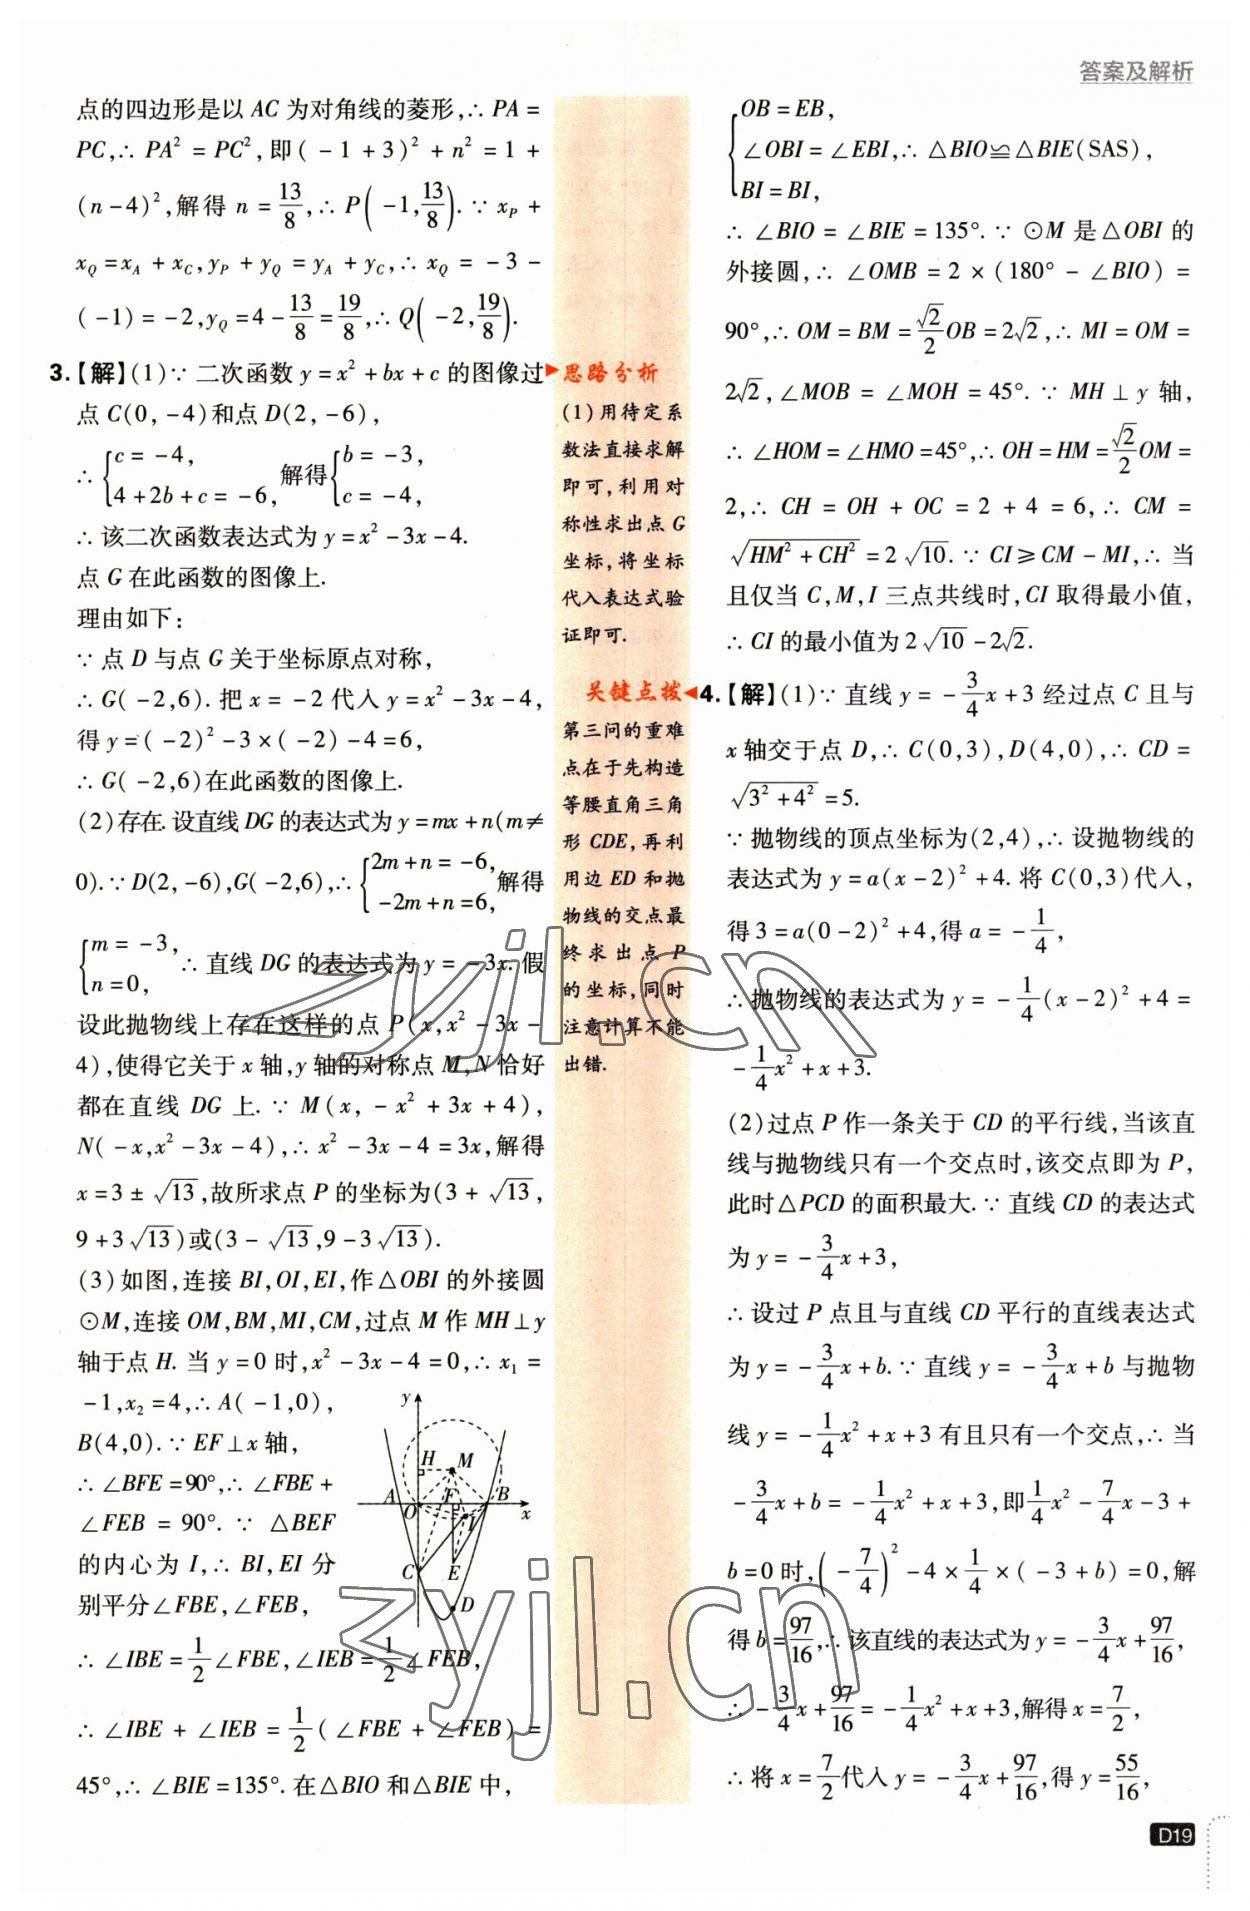 答案及解析
点的四边形是以 AC 为对角线的菱形,∴ PA =
PC,∴ PA² = PC²,即 ( - 1 + 3 )² + n² = 1 +
(n-4)²,解得 n = 13/8,∴ P( -1, 13/8 ). ∵ x_P +
x_Q = x_A + x_C, y_P + y_Q = y_A + y_C,∴ x_Q = - 3 -
( -1) = -2, y_Q = 4 - 13/8 = 19/8,∴ Q( -2, 19/8 ).
3.【解】(1)∵ 二次函数 y = x² + bx + c 的图像过
点 C(0, -4)和点 D(2, -6),
∴ { c = -4, 4 + 2b + c = -6, 解得 { b = -3, c = -4,
∴ 该二次函数表达式为 y = x² - 3x - 4.
点 G 在此函数的图像上.
理由如下:
∵ 点 D 与点 G 关于坐标原点对称,
∴ G( -2,6). 把 x = -2 代入 y = x² - 3x - 4,
得 y = ( -2)² - 3 × ( -2) - 4 = 6,
∴ G( -2,6)在此函数的图像上.
(2)存在. 设直线 DG 的表达式为 y = mx + n(m ≠
0). ∵ D(2, -6), G( -2,6),∴ { 2m + n = -6, -2m + n = 6, 解得
{ m = -3, n = 0, ∴ 直线 DG 的表达式为 y = -3x. 假
设此抛物线上存在这样的点 P(x, x² - 3x -
4),使得它关于 x 轴, y 轴的对称点 M, N 恰好
都在直线 DG 上. ∵ M(x, - x² + 3x + 4),
N( - x, x² - 3x - 4),∴ x² - 3x - 4 = 3x,解得
x = 3 ± √13,故所求点 P 的坐标为(3 + √13,
9 + 3√13)或(3 - √13, 9 - 3√13).
(3)如图,连接 BI, OI, EI,作△OBI 的外接圆
⊙M,连接 OM, BM, MI, CM,过点 M 作 MH⊥y
轴于点 H. 当 y = 0 时, x² - 3x - 4 = 0,∴ x₁ =
-1, x₂ = 4,∴ A( -1,0),
B(4,0). ∵ EF⊥x 轴,
∴ ∠BFE = 90°,∴ ∠FBE +
∠FEB = 90°. ∵ △BEF
的内心为 I,∴ BI, EI 分
别平分∠FBE, ∠FEB,
y
H
M
A
O
F
B
x
I
C
E
D
∴ ∠IBE = 1/2 ∠FBE, ∠IEB = 1/2 ∠FEB,
∴ ∠IBE + ∠IEB = 1/2 ( ∠FBE + ∠FEB) =
45°,∴ ∠BIE = 135°. 在△BIO 和△BIE 中,
思路分析
(1)用待定系
数法直接求解
即可,利用对
称性求出点 G
坐标,将坐标
代入表达式验
证即可.
关键点拨
第三问的重难
点在于先构造
等腰直角三角
形 CDE,再利
用边 ED 和抛
物线的交点最
终求出点 P
的坐标,同时
注意计算不能
出错.
{ OB = EB,
∠OBI = ∠EBI,∴ △BIO≌△BIE(SAS),
BI = BI,
∴ ∠BIO = ∠BIE = 135°. ∵ ⊙M 是△OBI 的
外接圆,∴ ∠OMB = 2 × (180° - ∠BIO) =
90°,∴ OM = BM = √2/2 OB = 2√2,∴ MI = OM =
2√2, ∠MOB = ∠MOH = 45°. ∵ MH ⊥ y 轴,
∴ ∠HOM = ∠HMO = 45°,∴ OH = HM = √2/2 OM =
2,∴ CH = OH + OC = 2 + 4 = 6,∴ CM =
√(HM² + CH²) = 2√10. ∵ CI ≥ CM - MI,∴ 当
且仅当 C, M, I 三点共线时, CI 取得最小值,
∴ CI 的最小值为 2√10 - 2√2.
4.【解】(1)∵ 直线 y = - 3/4 x + 3 经过点 C 且与
x 轴交于点 D,∴ C(0,3), D(4,0),∴ CD =
√(3² + 4²) = 5.
∵ 抛物线的顶点坐标为(2,4),∴ 设抛物线的
表达式为 y = a(x - 2)² + 4. 将 C(0,3)代入,
得 3 = a(0 - 2)² + 4,得 a = - 1/4,
∴抛物线的表达式为 y = - 1/4 (x - 2)² + 4 =
- 1/4 x² + x + 3.
(2)过点 P 作一条关于 CD 的平行线,当该直
线与抛物线只有一个交点时,该交点即为 P,
此时△PCD 的面积最大. ∵ 直线 CD 的表达式
为 y = - 3/4 x + 3,
∴ 设过 P 点且与直线 CD 平行的直线表达式
为 y = - 3/4 x + b. ∵ 直线 y = - 3/4 x + b 与抛物
线 y = - 1/4 x² + x + 3 有且只有一个交点,∴ 当
- 3/4 x + b = - 1/4 x² + x + 3,即 1/4 x² - 7/4 x - 3 +
b = 0 时, ( - 7/4 )² - 4 × 1/4 × ( - 3 + b) = 0,解
得 b = 97/16,∴ 该直线的表达式为 y = - 3/4 x + 97/16,
∴ - 3/4 x + 97/16 = - 1/4 x² + x + 3,解得 x = 7/2,
∴ 将 x = 7/2 代入 y = - 3/4 x + 97/16,得 y = 55/16,
D19
zyjl.cn
zyjl.cn